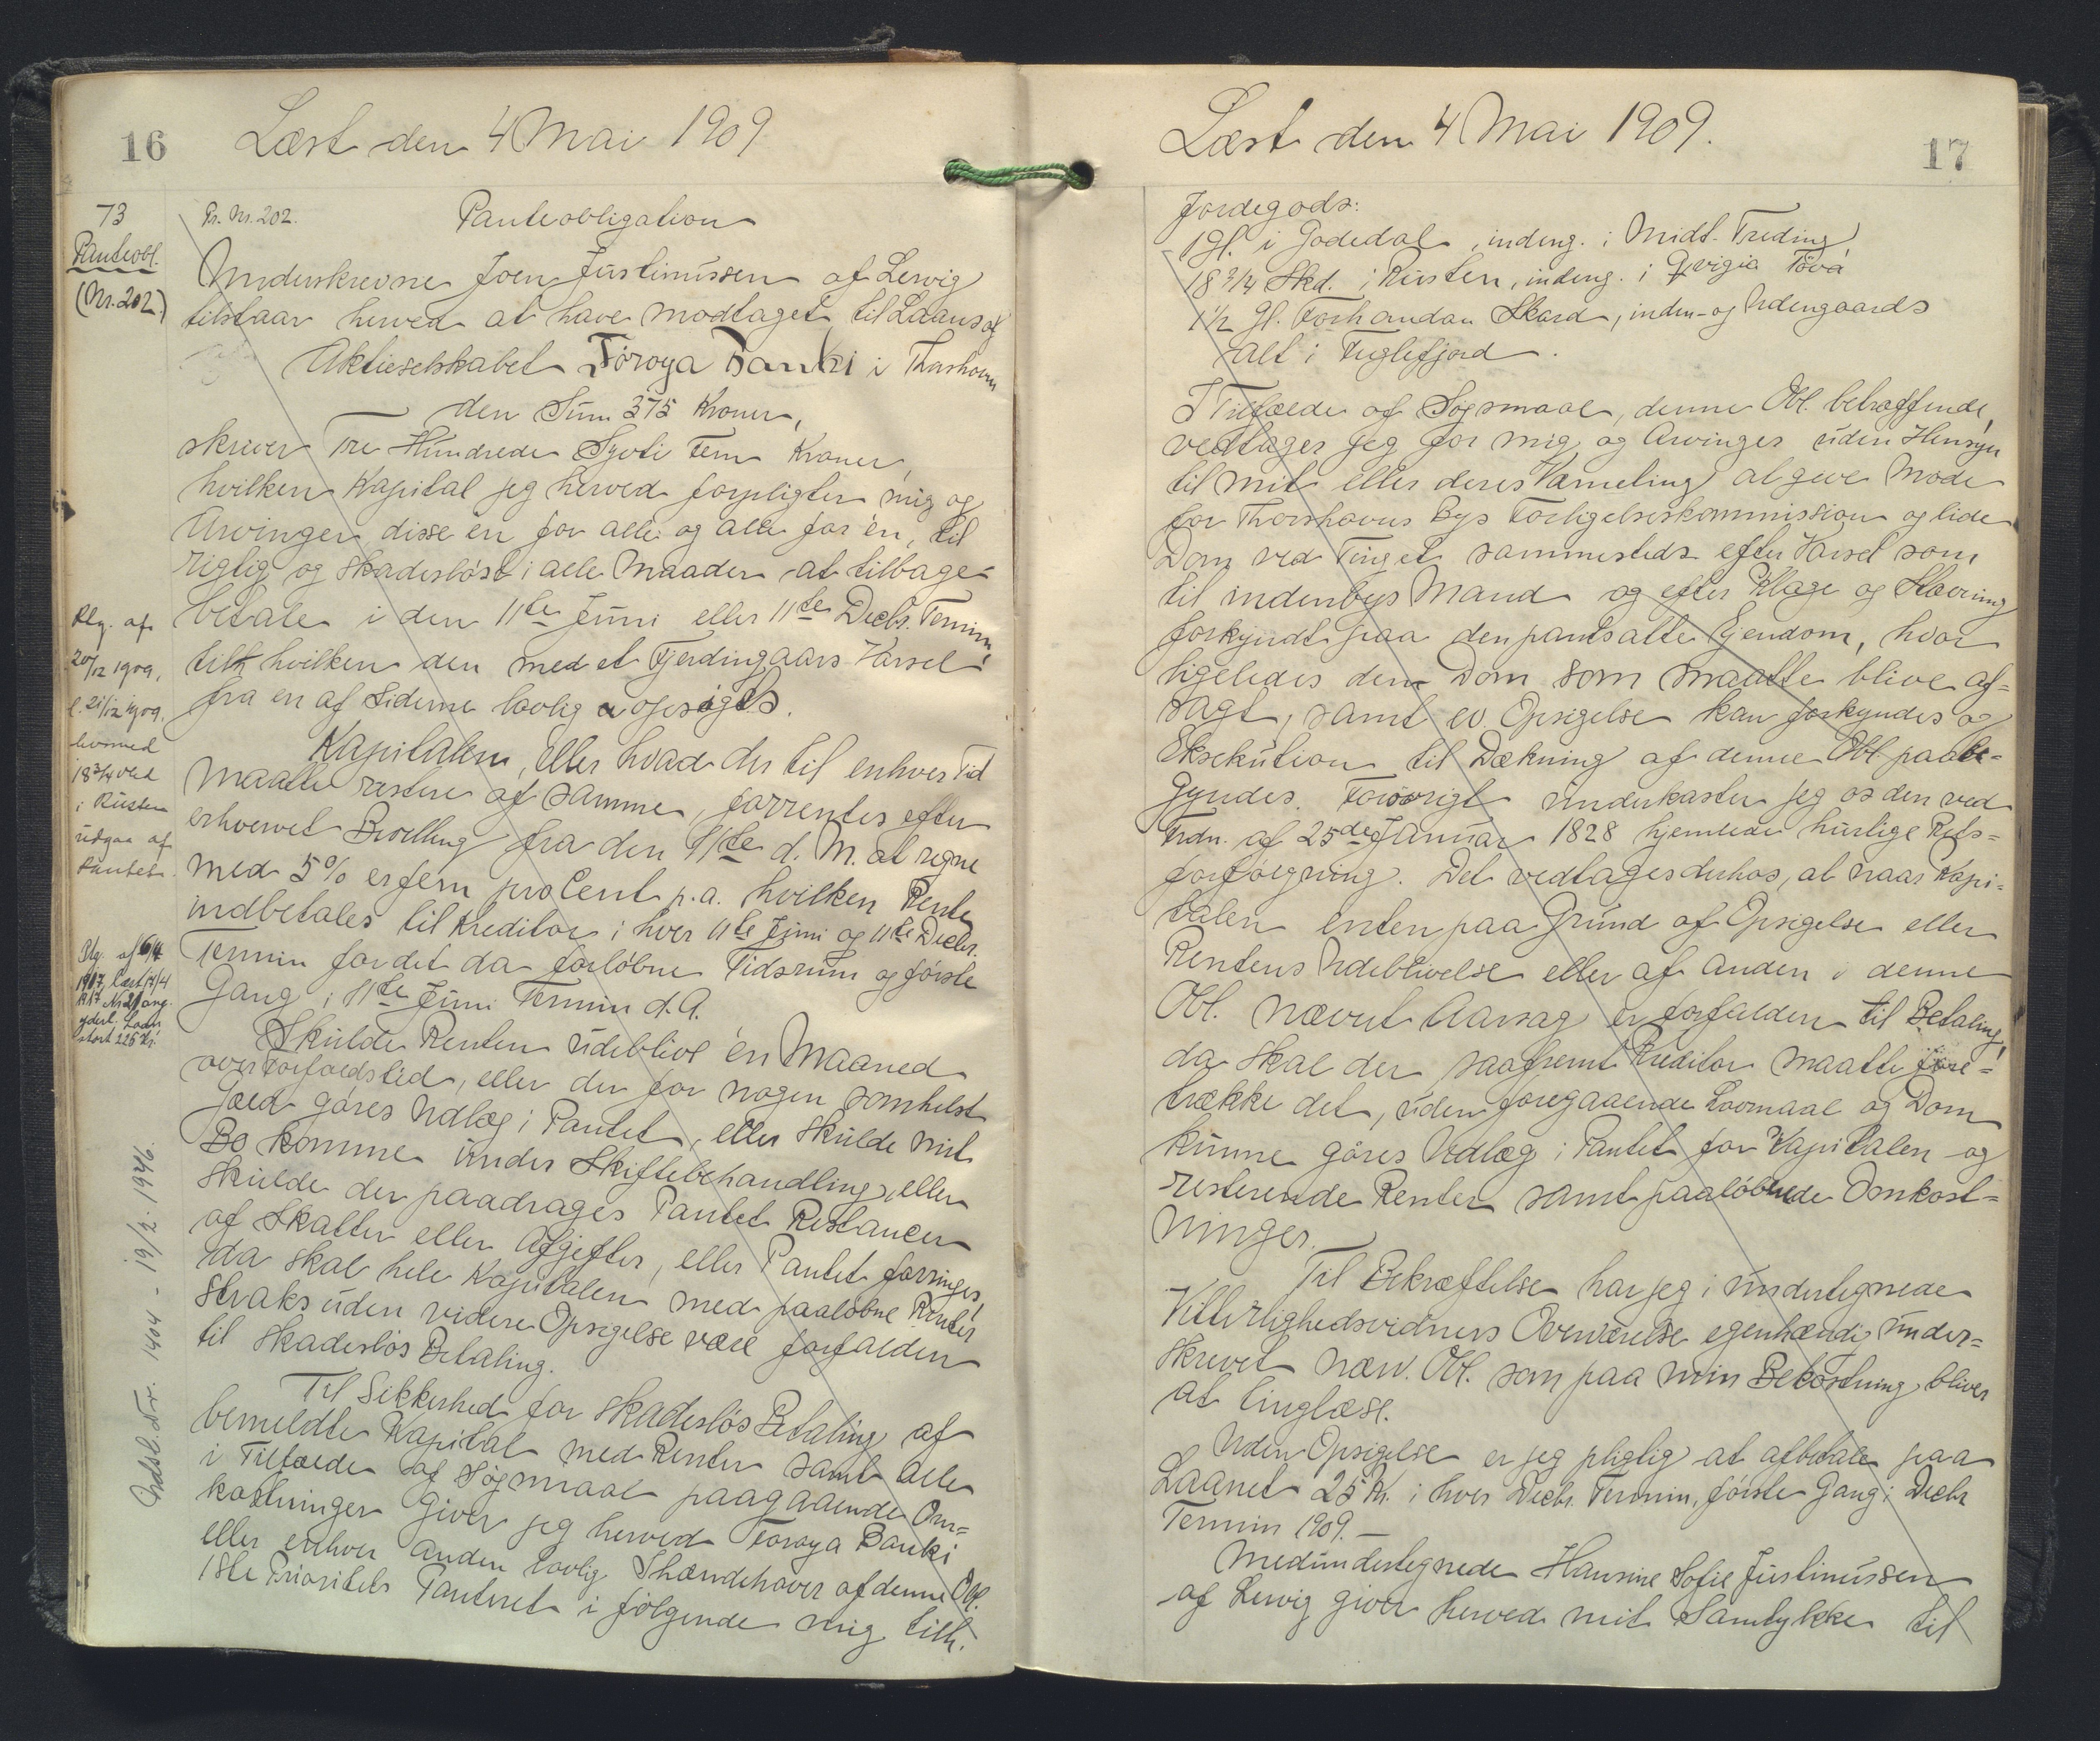 16
Læst den 4 Mai 1909
73
Panteobl.
(Nr. 202)
Pr. Nr. 202.
Panteobligation
Underskrevne Joen Justinussen af Lervig
tilstaar herved at have modtaget til Laans af
Aktieselskabet Föroya Banki i Thorshavn
den Sum 375 Kroner,
skriver Tre Hundrede Syvti Fem Kroner,
hvilken Kapital jeg herved forpligter mig og
Arvinger, disse en for alle og alle for én, til
rigtig og skadesløst i alle Maader at tilbage-
betale i den 11te Juni eller 11te Decbr. Termin,
til hvilken den med et Fjerdingaars Varsel
fra en af Siderne lovlig opsiges.
Kapitalen, eller hvad der til enhver Tid
maatte restere af samme, forrentes efter
erhvervet Bevilling fra den 11te d. M. at regne
med 5% er fem pro Cent p.a. hvilken Rente
indbetales til Kreditor i hver 11te Juni og 11te Decbr.
Termin for det da forløbne Tidsrum og første
Gang i 11te Juni Termin d. A.
Skulde Renten udeblive én Maaned
over Forfaldstid, eller der for nogen somhelst
Gæld gøres Udlæg i Pantet, eller skulde mit
Bo komme under Skiftebehandling, eller
skulde der paadrages Pantet Restancer
af Skatter eller Afgifter, eller Pantet forringes,
da skal hele Kapitalen med paaløbne Renter
straks uden videre Opsigelse være forfalden
til skadesløs Betaling.
Til Sikkerhed for skadesløs Betaling af
bemeldte Kapital med Renter samt alle
i Tilfælde af Søgsmaal paagaaende Om-
kostninger giver jeg herved Föroya Banki
eller enhver anden lovlig Ihændehaver af denne Obl.
1ste Prioritets Panteret i følgende mig tilh.
Klg. af
20/12 1909,
l. 21/12 1909.
hvorved
18 3/4 skd
i Rusten
udgaa af
Pantet.
Plg. af 6/4
1917, læst 17/4
1917 Nr 21 ang.
yderl. Laan
stort 225 Kr.
Indsl. Nr. 1404 - 19/2. 1946.
Læst den 4 Mai 1909.
17
Jordegods:
1 Gl. i Godedal, indeng. i Midt-Treding,
18 3/4 Skd. i Rusten, indeng. i Qvigia Tövá
1 1/2 Gl. Forhandan Skard, inden- og Udengaards
alt i Fuglefjord.
I Tilfælde af Søgsmaal, denne Obl. betræffende,
vedtager jeg for mig og Arvinger uden Hensyn
til mit eller deres Værneting at give Møde
for Thorshavns Bys Forligelseskommission og lide
Dom ved Tinget sammesteds efter Varsel som
til indenbys Mand og efter Klage og Stævning
forkyndt paa den pantsatte Ejendom, hvor
ligeledes den Dom som maatte blive af-
sagt, samt ev. Opsigelse kan forkyndes og
Eksekution til Dækning af denne Obl. paabe-
gyndes. Forøvrigt underkaster jeg os den ved
Frdn. af 25de Januar 1828 hjemlede hurtige Rets-
forfølgning. Det vedtages derhos, at naar Kapi-
talen enten paa Grund af Opsigelse eller
Rentens Udeblivelse eller af anden i denne
Obl. nævnt Aarsag er forfalden til Betaling,
da skal der, saafremt Kreditor maatte fore-
trække det, uden foregaaende Lovmaal og Dom
kunne gøres Udlæg i Pantet for Kapitalen og
resterende Renter samt paaløbende Omkost-
ninger.
Til Bekræftelse har jeg i undertegnede
Vitterlighedsvidners Overværelse egenhændig under-
skrevet nærv. Obl. som paa min Bekostning bliver
at tinglæse.
Uden Opsigelse er jeg pligtig at afbetale paa
Laanet 25 Kr. i hver Decbr. Termin, første Gang i Decbr
Termin 1909. —
Medundertegnede Hansine Sofie Justinussen
af Lervig giver herved mit Samtykke til